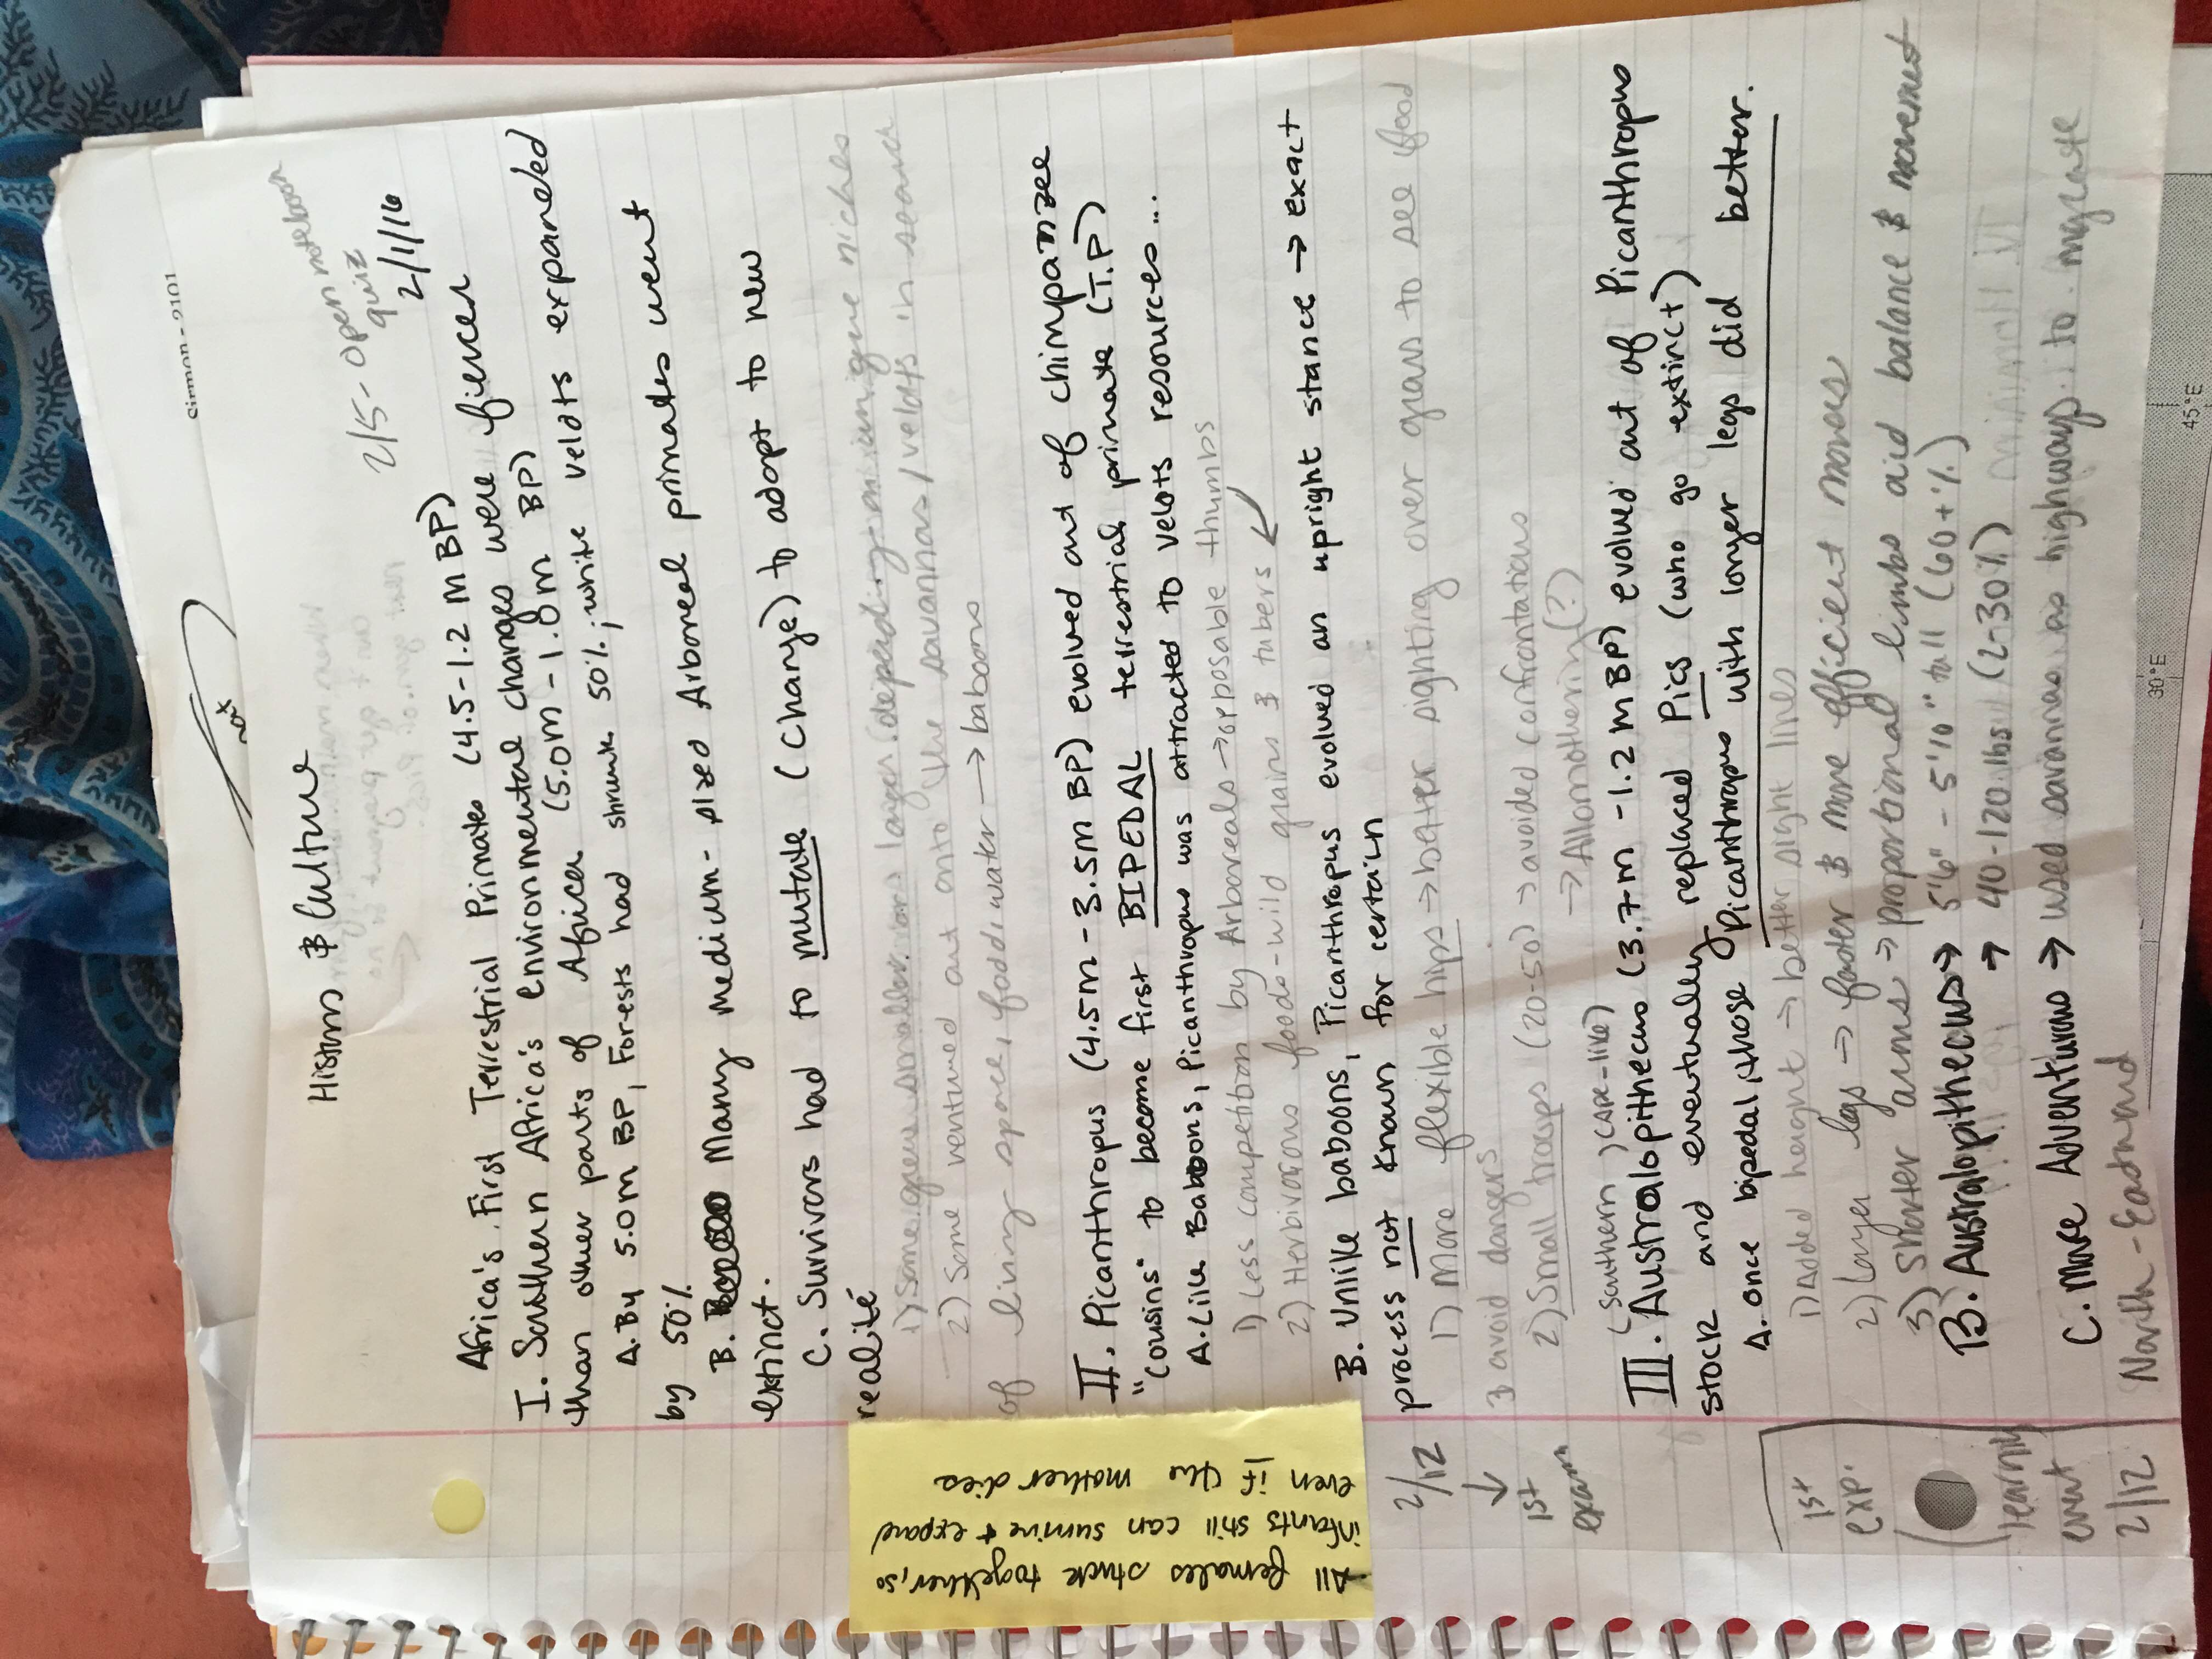 Sirmon - 2101
not
History & Culture
2/5 - open notebook
quiz
2/1/16
Africa's First Terrestrial Primates (4.5-1.2 M BP)
I. Southern Africa's environmental changes were fiercer
than other parts of Africa (5.0m - 1.0m BP)
A. By 5.0m BP, Forests had shrunk 50%; while veldts expanded
by 50%
B. Many medium-sized Arboreal primates went
extinct.
C. Survivors had to mutate (change) to adopt to new
realité
1) Some grew smaller or larger (depending on unique niches
2) Some ventured out onto the savannas/velots in search
of living space, food & water → baboons
II. Picanthropus (4.5m - 3.5m BP) evolved out of chimpanzee
"cousins" to become first BIPEDAL terrestrial primate (T.P)
A. Like Baboons, Picanthropus was attracted to velots resources...
1) Less competition by Arboreals → opposable thumbs
2) Herbivorous foods - wild grains & tubers
B. Unlike baboons, Picanthropus evolved an upright stance → exact
process not known for certain
1) More flexible hips → better sighting over grass to see food
& avoid dangers
2) Small troops (20-50) → avoided confrontations
→ Allomothering (?)
(Southern) (APE-like)
III. Australopithecus (3.7m - 1.2m BP) evolved out of Picanthropus
stock and eventually replaced Pics (who go extinct)
A. once bipedal, those Picanthropus with longer legs did better.
1) Added height → better sight lines
2) Longer legs → faster & more efficient moves
3) Shorter arms → proportional limbs aid balance & movement
B. Australopithecus → 5'6" - 5'10" tall (60+%)
→ 40-120 lbs (2-30%)
C. More Adventurous → used savannas as highways to migrate
North-Eastward
All females stuck together, so
infants still can survive & expand
even if the mother dies
2/12
↓
1st
exam
1st
exp.
(learning
event
2/12
30°E
45°E